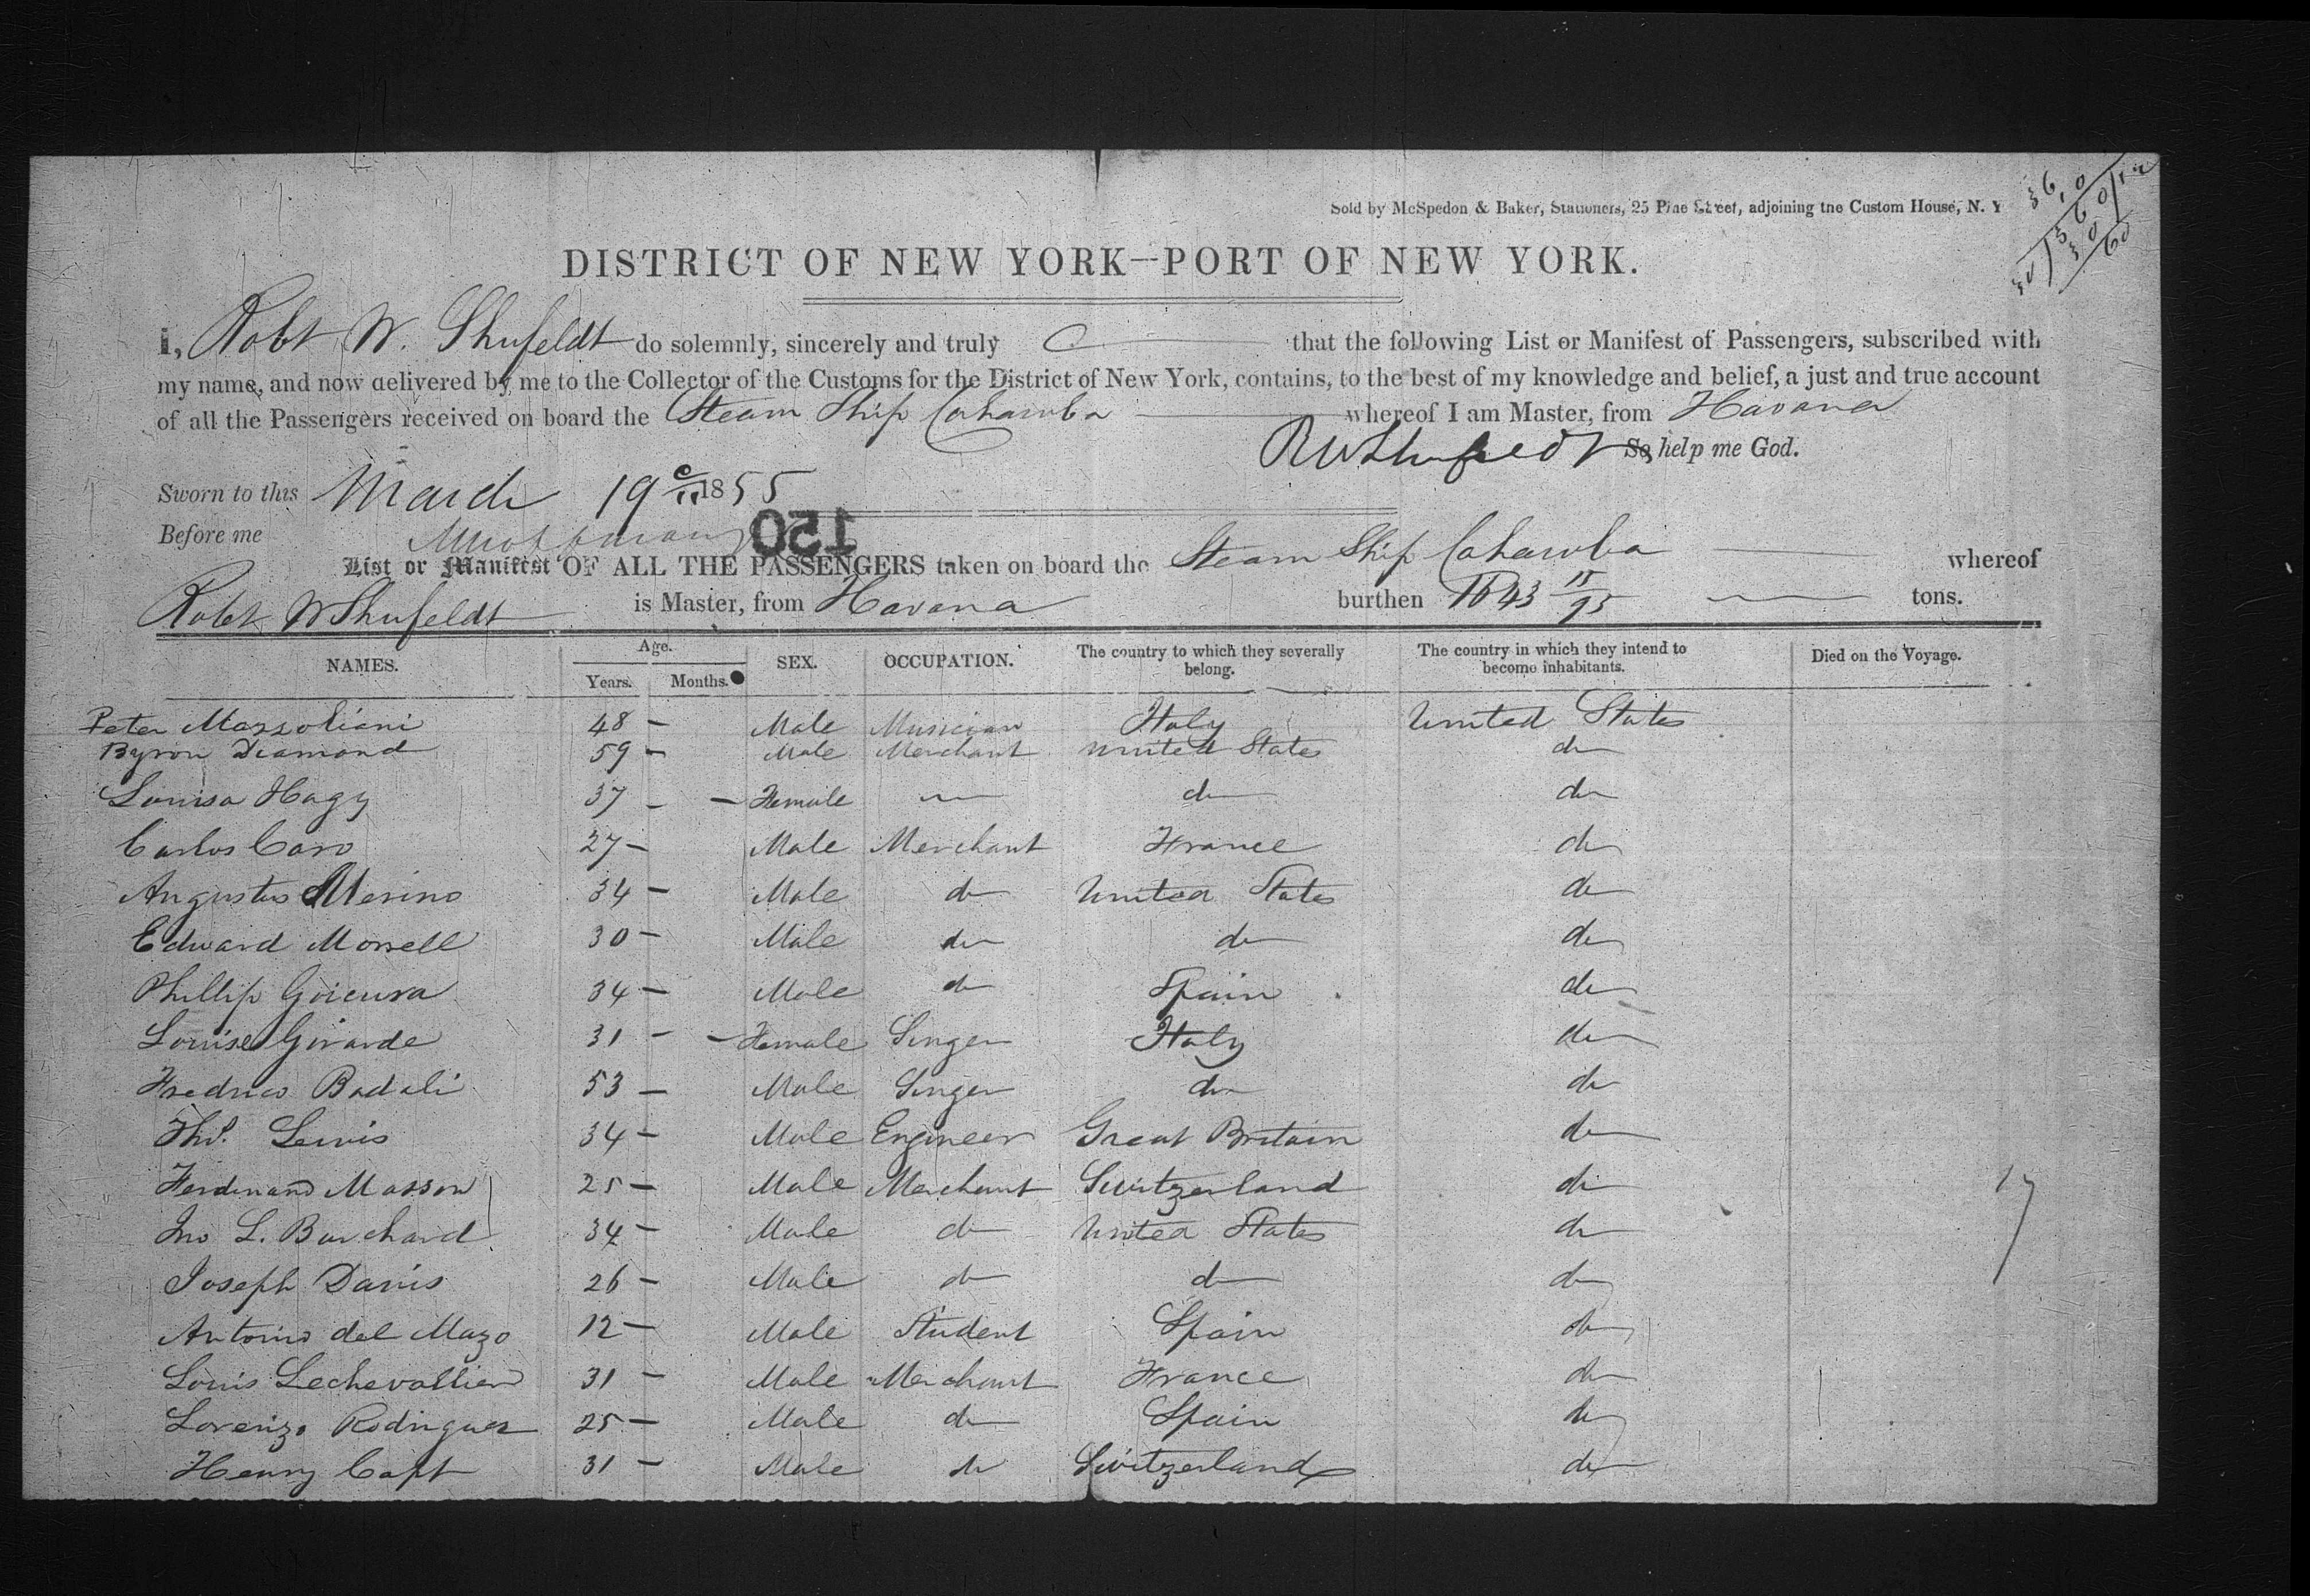 Sold by McSpedon & Baker, Stationers, 25 Pine Street, adjoining the Custom House, N. Y
DISTRICT OF NEW YORK--PORT OF NEW YORK.
I, Robt W. Shufeldt do solemnly, sincerely and truly that the following List or Manifest of Passengers, subscribed with
my name, and now delivered by me to the Collector of the Customs for the District of New York, contains, to the best of my knowledge and belief, a just and true account
of all the Passengers received on board the Steam Ship Cahawba whereof I am Master, from Havana
RW Shufeldt So help me God.
Sworn to this March 19 1855
Before me
150
List or Manifest OF ALL THE PASSENGERS taken on board the Steam Ship Cahawba whereof
Robt W Shufeldt is Master, from Havana burthen 1643 15/95 tons.
NAMES. Age. Years. Months. SEX. OCCUPATION. The country to which they severally belong. The country in which they intend to become inhabitants. Died on the Voyage.
Peter Mazzoliani 48 – Male Musician Italy United States
Byron Diamond 59 – Male Merchant United States do
Louisa Hagy 37 – – Female — do do
Carlos Caro 27 – Male Merchant France do
Augustus Merino 34 – Male do United States do
Edward Morrell 30 – Male do do do
Phillip Goicura 34 – Male do Spain do
Louise Girarde 31 – – Female Singer Italy do
Fredrico Badali 53 – Male Singer do do
Thos. Lewis 34 – Male Engineer Great Britain do
Ferdinand Masson 25 – Male Merchant Switzerland do 17
Jno L. Burchard 34 – Male do United States do
Joseph Davis 26 – Male do do do
Antonio del Mazo 12 – Male Student Spain do
Louis Lechevallier 31 – Male Merchant France do
Lorenzo Rodriguez 25 – Male do Spain do
Henry Capt 31 – Male do Switzerland do